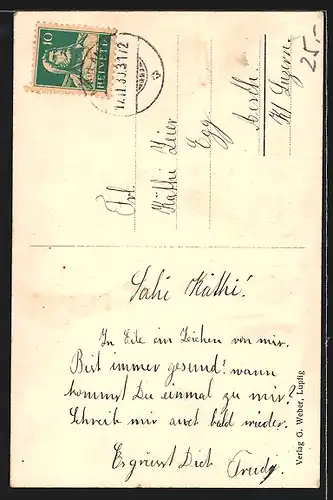 25.-
10
HELVETIA
17.II.30.31
Frl.
Käthi Leier
Egg
Aesch
Kt Luzern.
Salü Käthi!
In Eile ein Zeichen von mir.
Bist immer gesund! wann
kommst Du einmal zu mir?
Schreib mir auch bald wieder.
Es grüsst Dich Trudy
Verlag G. Weber, Lupfig